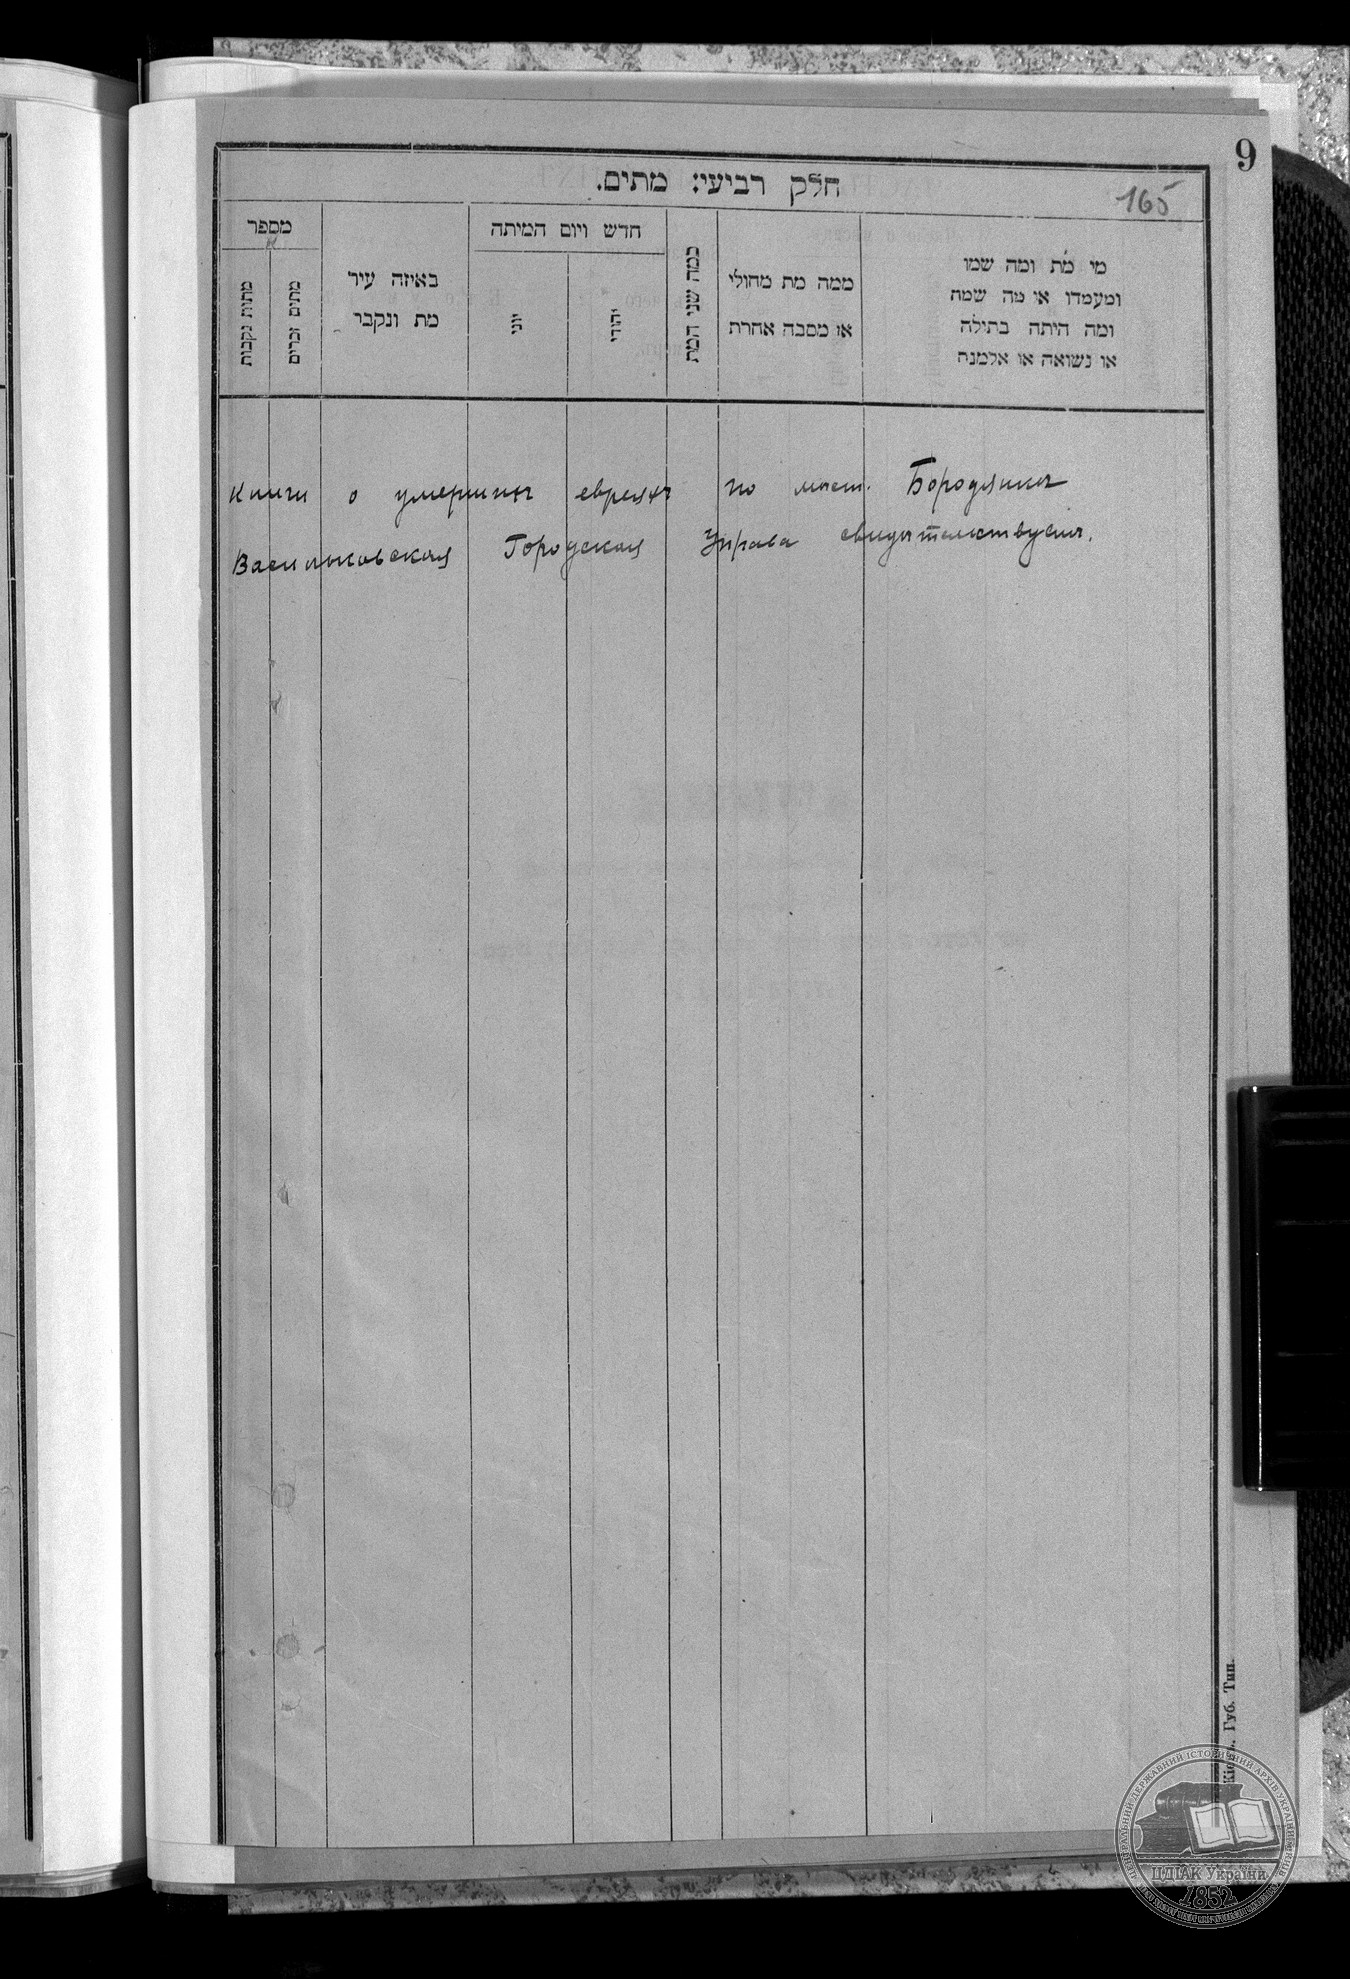 9
165
חלק רביעי: מתים.
מספר
מתות נקבות
מתים זכרים
באיזה עיר
מת ונקבר
חדש ויום המיתה
יוני
יהודי
כמה שני המת
ממה מת מחולי
או מסבה אחרת
מי מת ומה שמו
ומעמדו או מה שמה
ומה היתה בתולה
או נשואה או אלמנה
книги о умерших евреях по мест. Бородянка
Васильковская Городская Управа свидѣтельствуетъ.
Кіевъ. Губ. Тип.
ЦЕНТРАЛЬНИЙ ДЕРЖАВНИЙ ІСТОРИЧНИЙ АРХІВ УКРАЇНИ
ЦДІАК України
1852